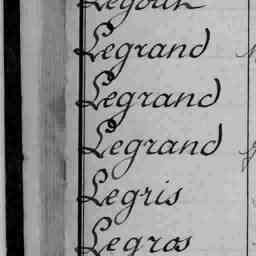 Legrand
Legrand
Legrand
Legris
Legros